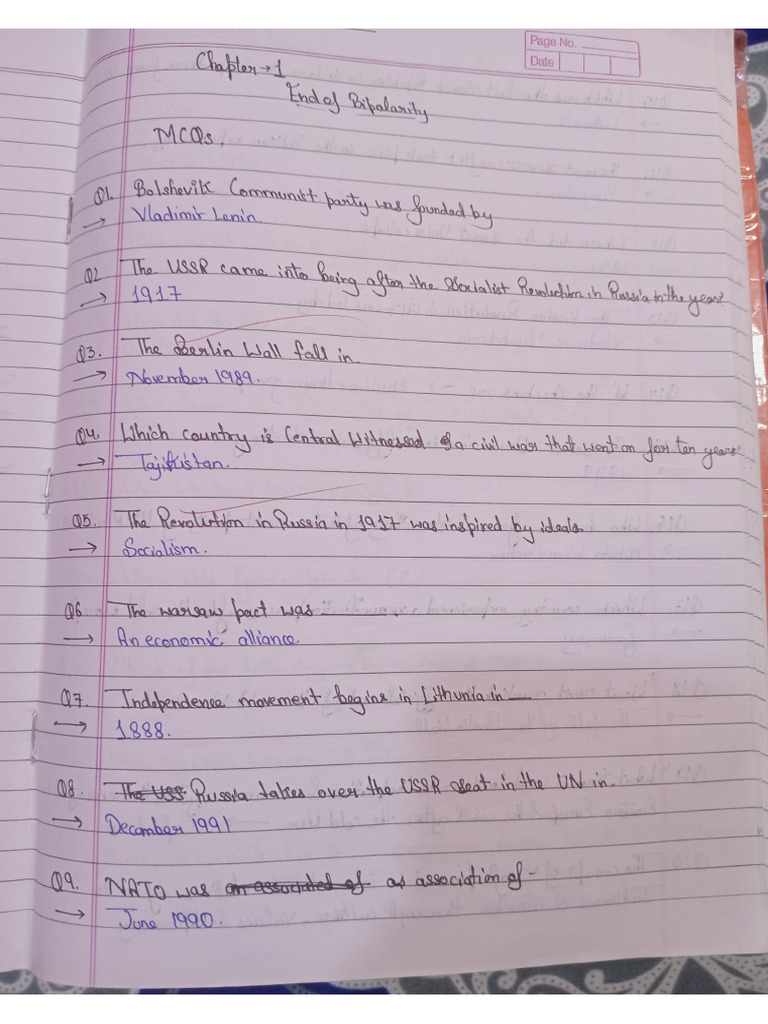 Page No.
Date
Chapter → 1
End of Bipolarity
MCQs.
Q1. Bolshevik Communist party was founded by
→ Vladimir Lenin
Q2 The USSR came into being after the Socialist Revolution in Russia in the year?
→ 1917
Q3. The Berlin Wall fall in.
→ November 1989.
Q4. Which country is Central Witnessed of a civil war that went on for ten years
→ Tajikistan.
Q5. The Revolution in Russia in 1917 was inspired by ideals.
→ Socialism.
Q6 The warsaw pact was ______.
→ An economic alliance
Q7. Independence movement begins in Lithunia in —
→ 1888.
Q8. The USS Russia takes over the USSR seat in the UN in.
→ December 1991
Q9. NATO was an associated of as association of -
→ June 1990.